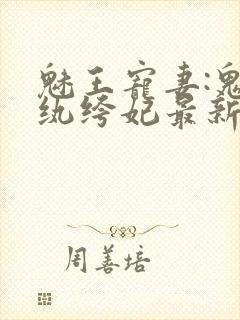 魅王宠妻:鬼
纨绔妃最新
周善培